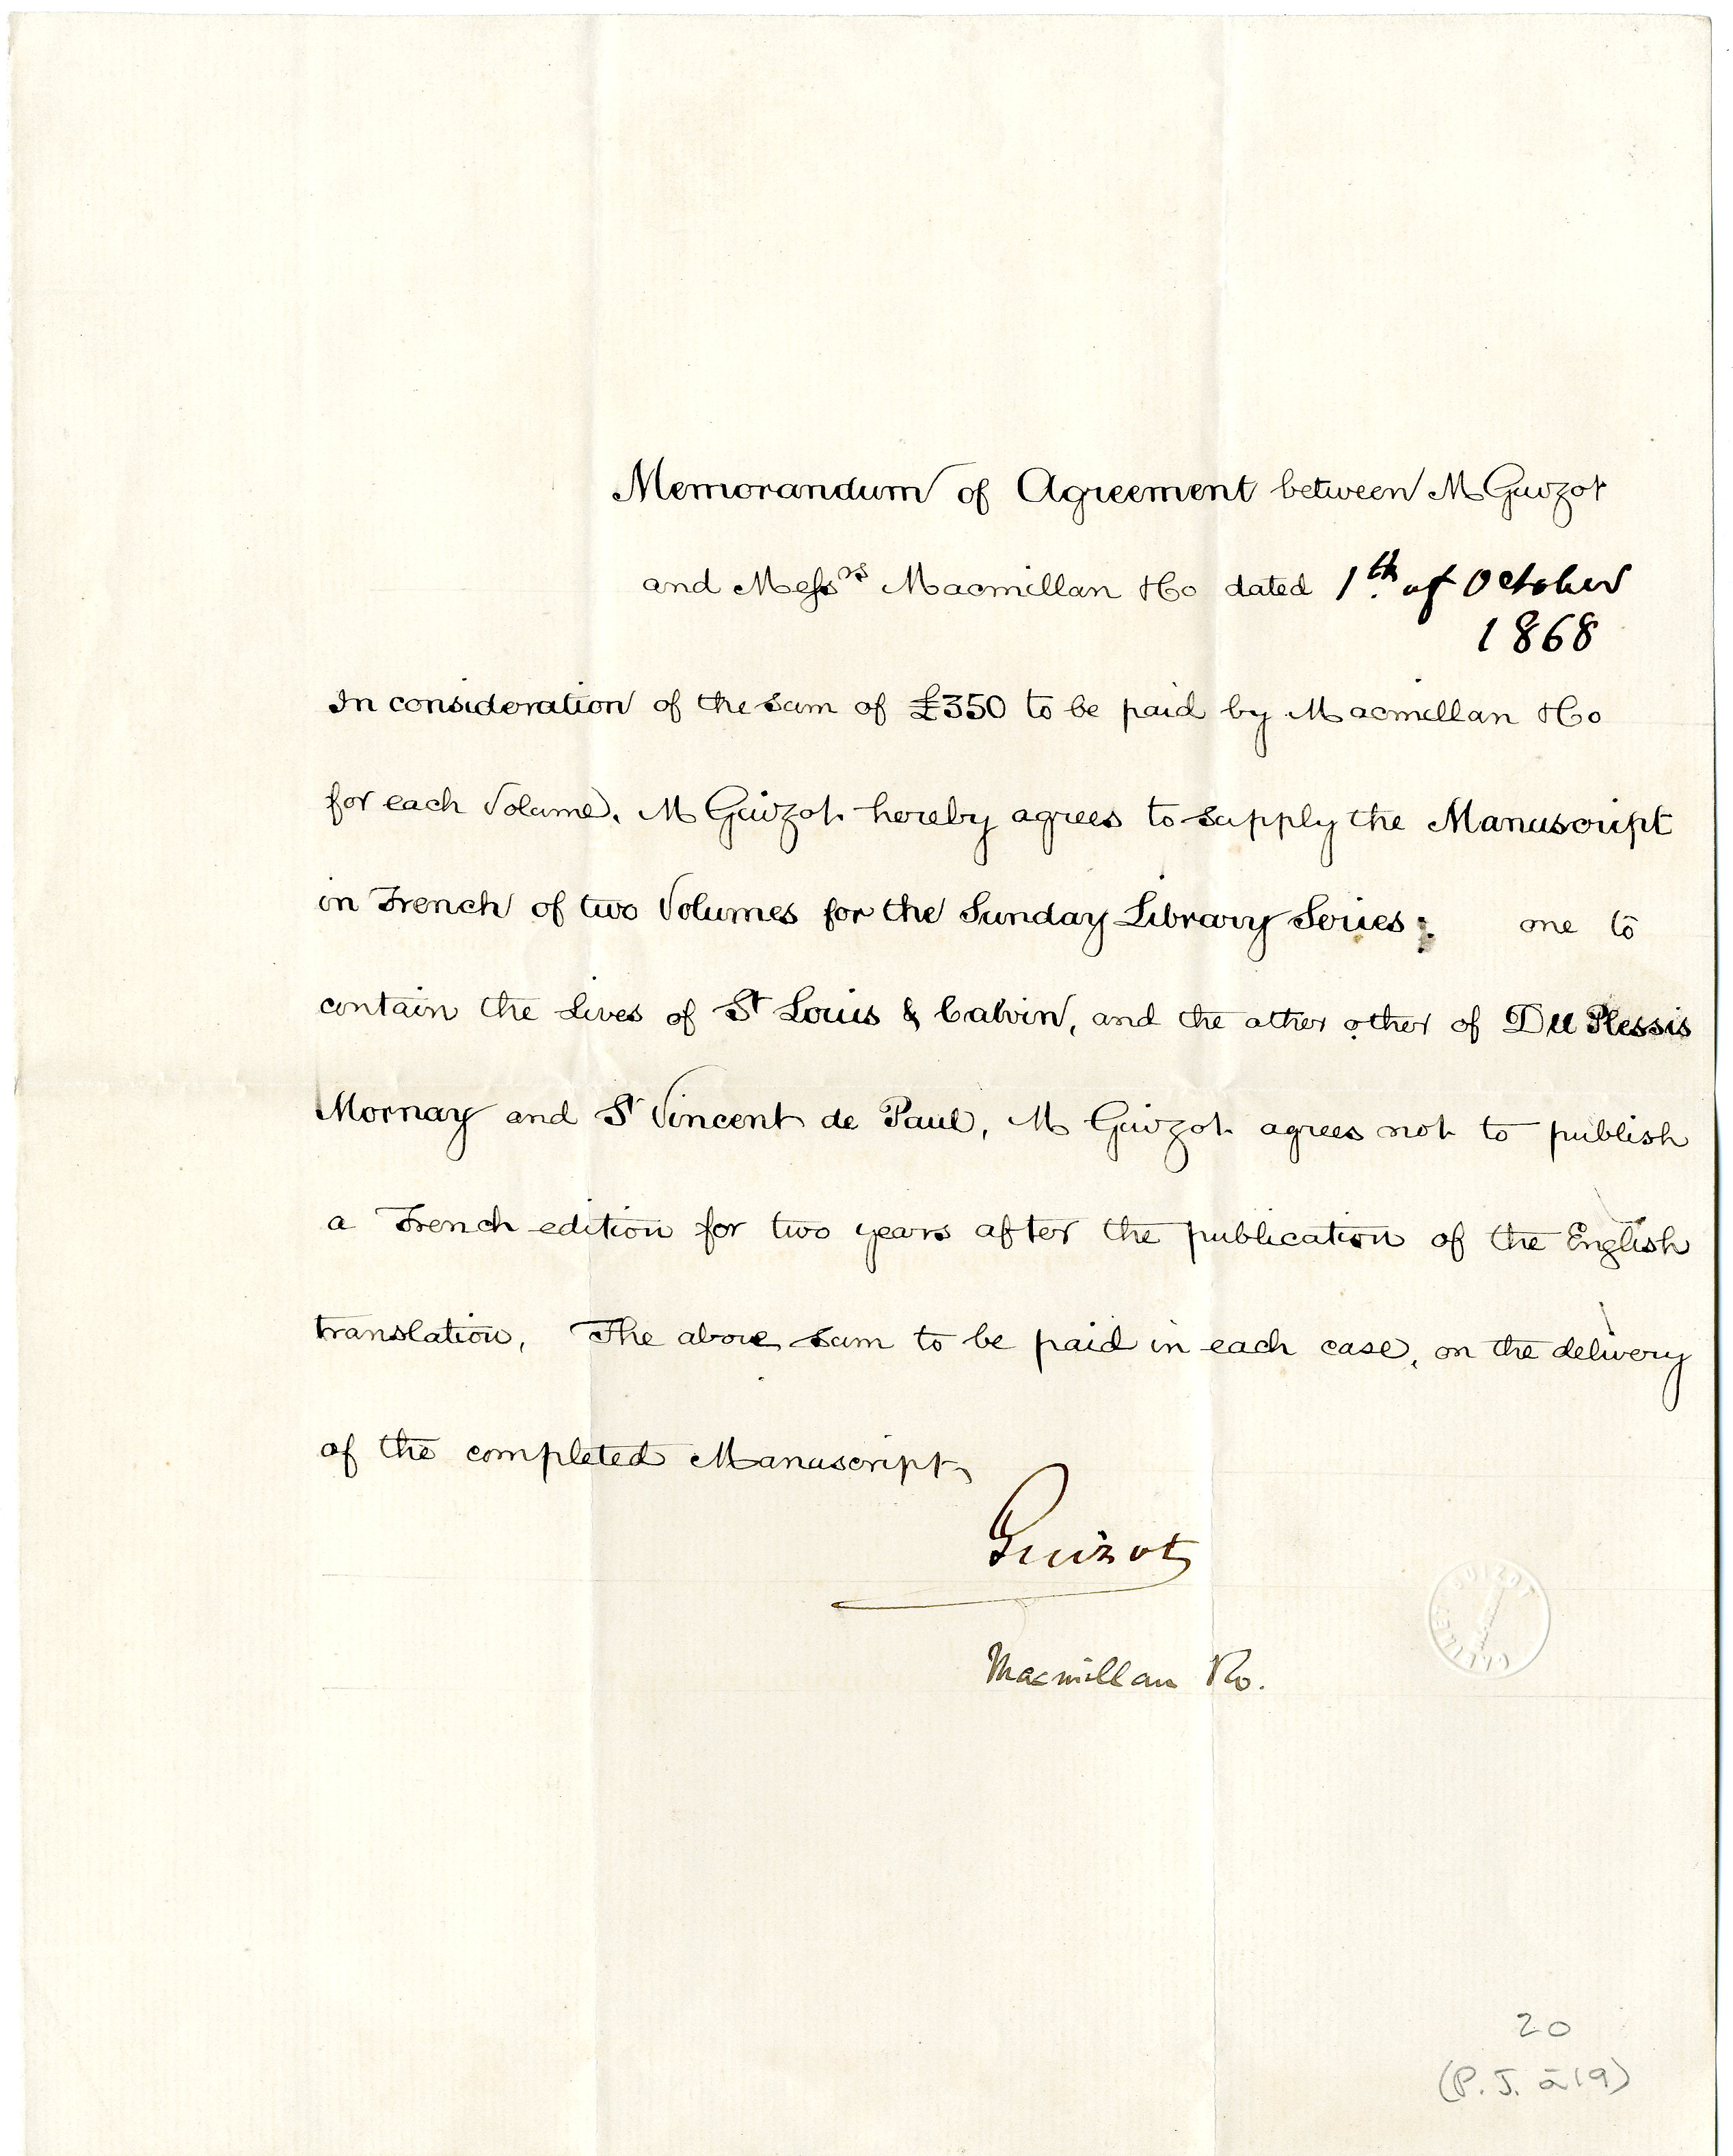 Memorandum of Agreement between M Guizot
and Messrs Macmillan & Co dated 1th of October
1868
In consideration of the sum of £350 to be paid by Macmillan & Co
for each Volume, M Guizot hereby agrees to supply the Manuscript
in French of two Volumes for the Sunday Library Series; one to
contain the Lives of St Louis & Calvin, and the other other of Du Plessis
Mornay and St Vincent de Paul, M Guizot agrees not to publish
a French edition for two years after the publication of the English
translation, The above sum to be paid in each case, on the delivery
of the completed Manuscript,
Guizot
Macmillan & Co.
GUIZOT
20
(P. J. à 19)